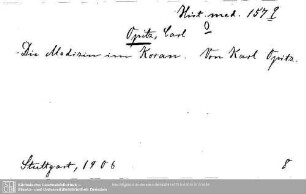 Hist. med. 157 f
Opitz, Carl
Die Medizin im Koran. Von Karl Opitz.
Stuttgart, 1906 8
Sächsische Landesbibliothek -
Staats- und Universitätsbibliothek Dresden